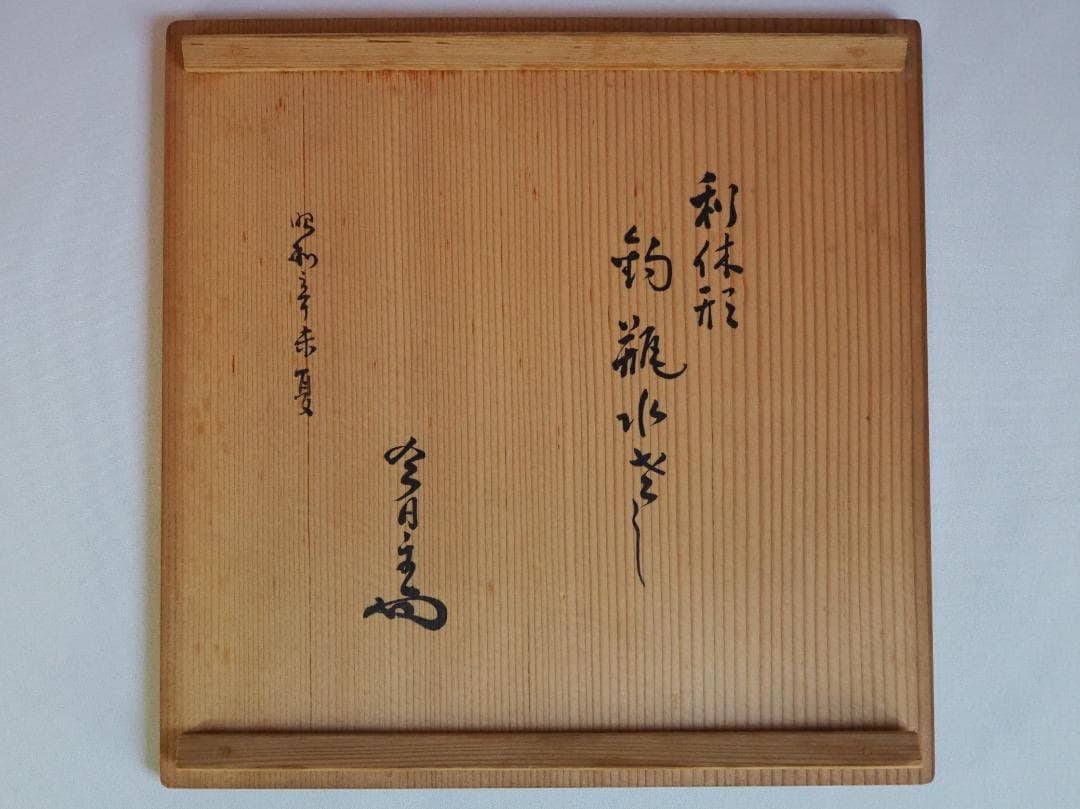 利休形
釣瓶水差し
今日主
昭和辛未夏